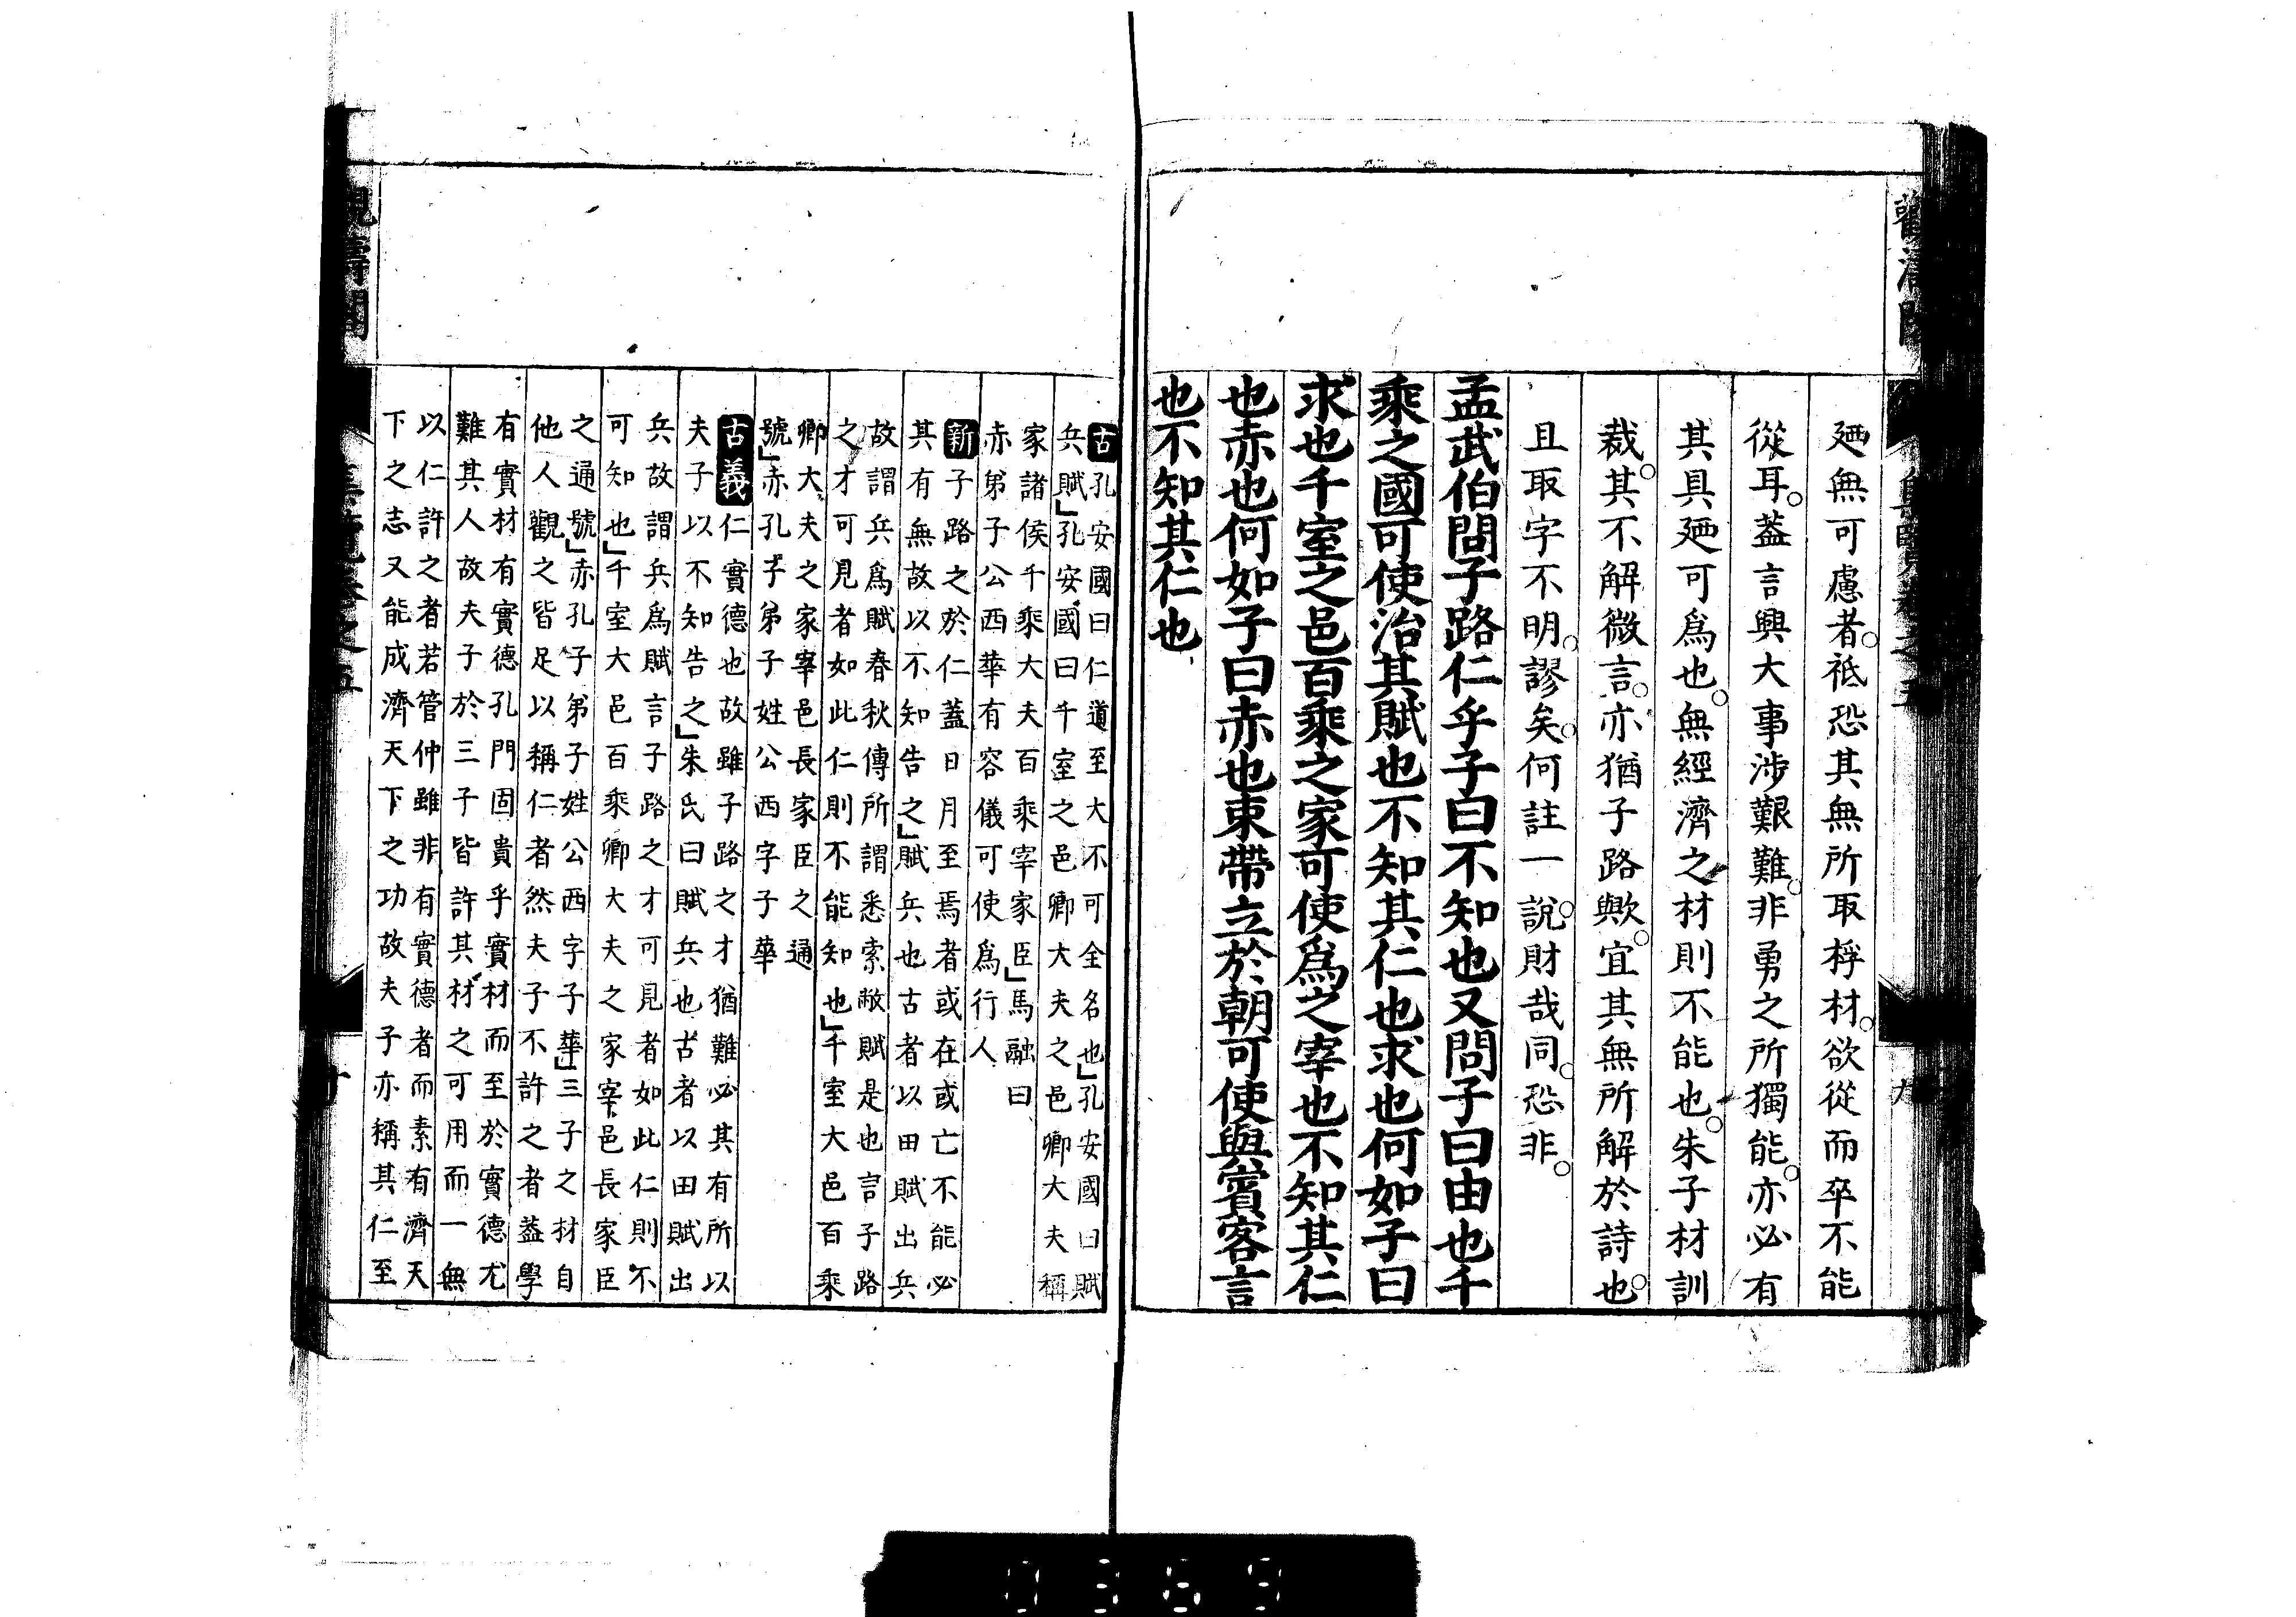 廼無可慮者祗恐其無所取桴材欲從而卒不能
從耳葢言興大事涉艱難非勇之所獨能亦必有
其具廼可爲也無經濟之材則不能也朱子材訓
裁其不解微言亦猶子路歟宜其無所解於詩也
且取字不明謬矣何註一說財哉同恐非
孟武伯問子路仁乎子曰不知也又問子曰由也千
乘之國可使治其賦也不知其仁也求也何如子曰
求也千室之邑百乘之家可使爲之宰也不知其仁
也赤也何如子曰赤也束帶立於朝可使與賓客言
也不知其仁也
九
古孔安國曰仁道至大不可全名也」孔安國曰賦
兵賦」孔安國曰千室之邑卿大夫之邑卿大夫稱
家諸侯千乘大夫百乘宰家臣」馬融曰
赤弟子公西華有容儀可使爲行人
新子路之於仁葢日月至焉者或在或亡不能必
其有無故以不知告之」賦兵也古者以田賦出兵
故謂兵爲賦春秋傳所謂悉索敝賦是也言子路
之才可見者如此仁則不能知也」千室大邑百乘
卿大夫之家宰邑長家臣之通
號」赤孔子弟子姓公西字子華
古義仁實德也故雖子路之才猶難必其有所以
夫子以不知告之」朱氏曰賦兵也古者以田賦出
兵故謂兵爲賦言子路之才可見者如此仁則不
可知也」千室大邑百乘卿大夫之家宰邑長家臣
之通號」赤孔子弟子姓公西字子華」三子之材自
他人觀之皆足以稱仁者然夫子不許之者葢學
有實材有實德孔門固貴乎實材而至於實德尤
難其人故夫子於三子皆許其材之可用而一無
以仁許之者若管仲雖非有實德者而素有濟天
下之志又能成濟天下之功故夫子亦稱其仁至
0369